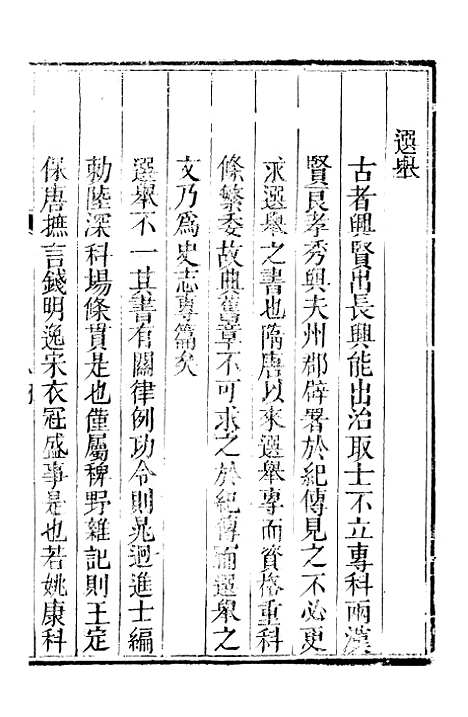 選舉
古者興賢出長興能出治取士不立專科兩漢
賢良孝秀與夫州郡辟署於紀傳見之不必更
求選舉之書也隋唐以來選舉專而資格重科
條繁委故典舊章不可求之於紀傳而選舉之
文乃爲史志專篇矣
選舉不一其書有關律例功令則晁迥進士編
勅陸深科場條貫是也僅屬稗野雜記則王定
保唐摭言錢明逸宋衣冠盛事是也若姚康科